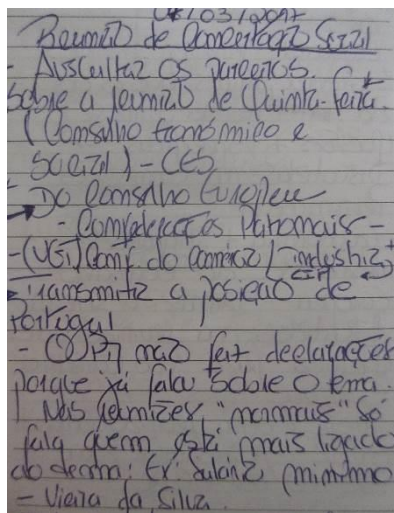 /03/2017
Reunião de Concertação Social
- Auscultar os parceiros.
Sobre a reunião de Quinta-feira
(Conselho Económico e
Social) - CES
Do Conselho Europeu
- Confederações Patronais -
- (UGT) Conf. do Comércio / indústria
Transmitir a posição de
Portugal
- O PM não faz declarações
porque já falou sobre o tema.
Nas reuniões "normais" só
fala quem está mais ligado
ao tema: Ex: Salário mínimo
- Vieira da Silva.